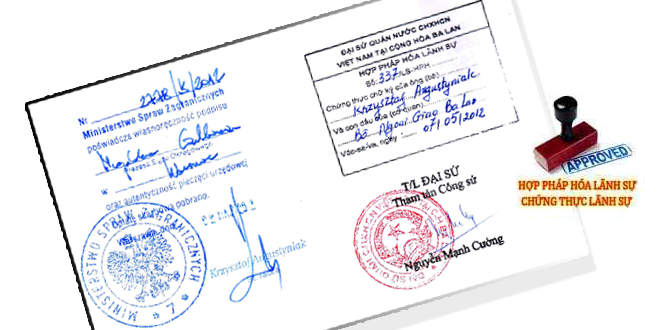 Nr 2778/K/2012
Ministerstwo Spraw Zagranicznych
poświadcza własnoręczność podpisu
w Warszawie
oraz autentyczność pieczęci urzędowej
pobrano.
MINISTERSTWO SPRAW ZAGRANICZNYCH
Krzysztof Augustyniak
ĐẠI SỨ QUÁN NƯỚC CHXHCN
VIỆT NAM TẠI CỘNG HÒA BA LAN
HỢP PHÁP HÓA LÃNH SỰ
Số: 337/LS-HPH
Chứng thực chữ ký của ông (bà)
Krzysztof Augustyniak
Và con dấu của (cơ quan)
Bộ Ngoại Giao Ba Lan
Vác-sa-va, ngày 07/05/2012
T/L ĐẠI SỨ
Tham tán Công sứ
Nguyễn Mạnh Cường
APPROVED
HỢP PHÁP HÓA LÃNH SỰ
CHỨNG THỰC LÃNH SỰ